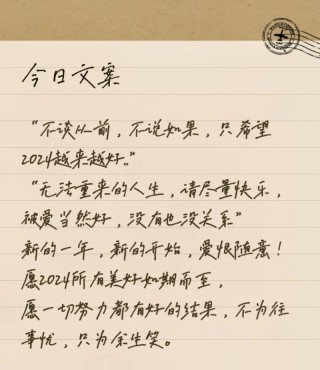 今日文案
“不谈从前，不说如果，只希望
2024越来越好。”
“无法重来的人生，请尽量快乐，
被爱当然好，没有也没关系”
新的一年，新的开始，爱恨随意！
愿2024所有美好如期而至，
愿一切努力都有好的结果，不为往
事忧，只为余生笑。